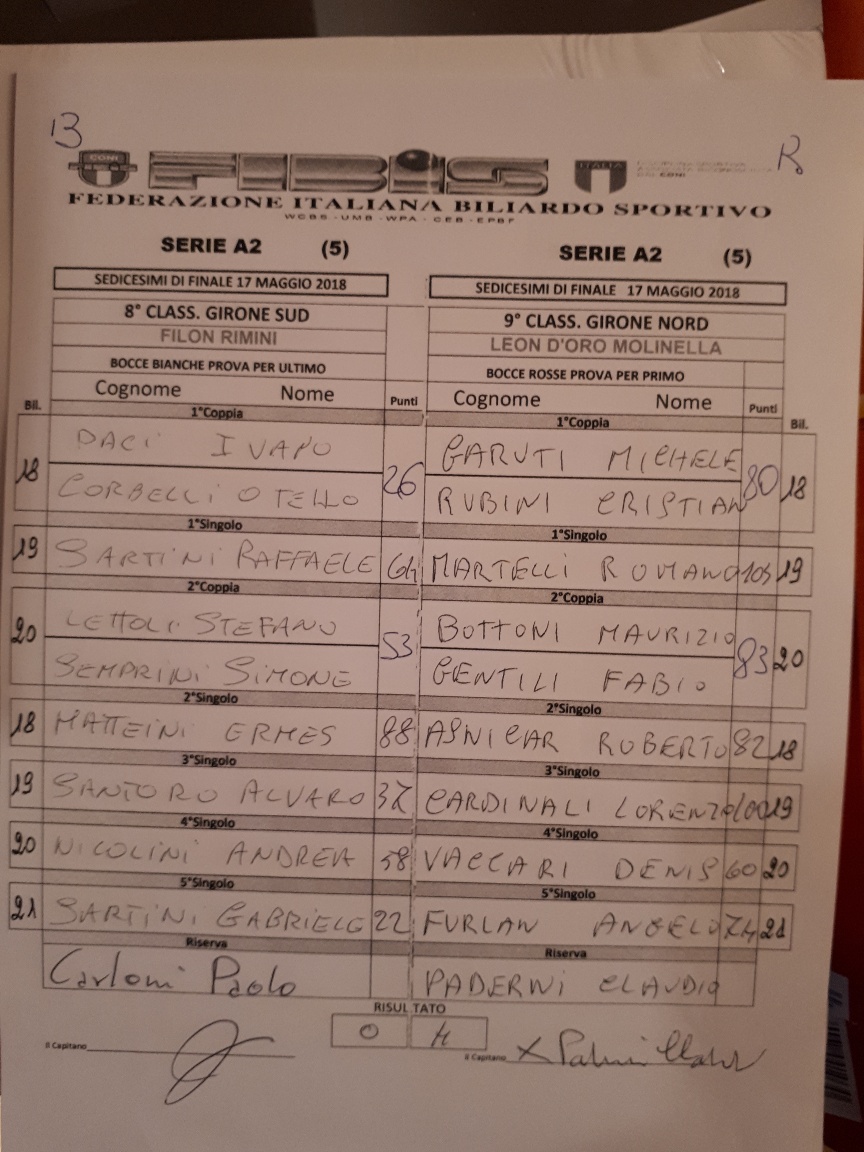 B
R
CONI
FIBiS
ITALIA
FEDERAZIONE ITALIANA BILIARDO SPORTIVO
WCBS - UMB - WPA - CEB - EPBF
SERIE A2 (5)
SERIE A2 (5)
SEDICESIMI DI FINALE 17 MAGGIO 2018
SEDICESIMI DI FINALE 17 MAGGIO 2018
8° CLASS. GIRONE SUD
9° CLASS. GIRONE NORD
FILON RIMINI
LEON D'ORO MOLINELLA
BOCCE BIANCHE PROVA PER ULTIMO
BOCCE ROSSE PROVA PER PRIMO
Bil. Cognome Nome Punti
Cognome Nome Punti Bil.
1°Coppia
1°Coppia
18 DACI IVANO 26
CORBELLI OTELLO
GARUTI MICHELE 80 18
RUBINI CRISTIAN
1°Singolo
1°Singolo
19 SARTINI RAFFAELE 64
MARTELLI ROMANO 105 19
2°Coppia
2°Coppia
20 LETTOLI STEFANO 53
SEMPRINI SIMONE
BOTTONI MAURIZIO 83 20
GENTILI FABIO
2°Singolo
2°Singolo
18 MATTEINI ERMES 88
ASNICAR ROBERTO 82 18
3°Singolo
3°Singolo
19 SANTORO ALVARO 37
CARDINALI LORENZO 100 19
4°Singolo
4°Singolo
20 NICOLINI ANDREA 58
VACCARI DENIS 60 20
5°Singolo
5°Singolo
21 SARTINI GABRIELE 22
FURLAN ANGELO 74 21
Riserva
Riserva
Carloni Paolo
PADERNI CLAUDIO
RISULTATO
0 4
Il Capitano
Il Capitano X